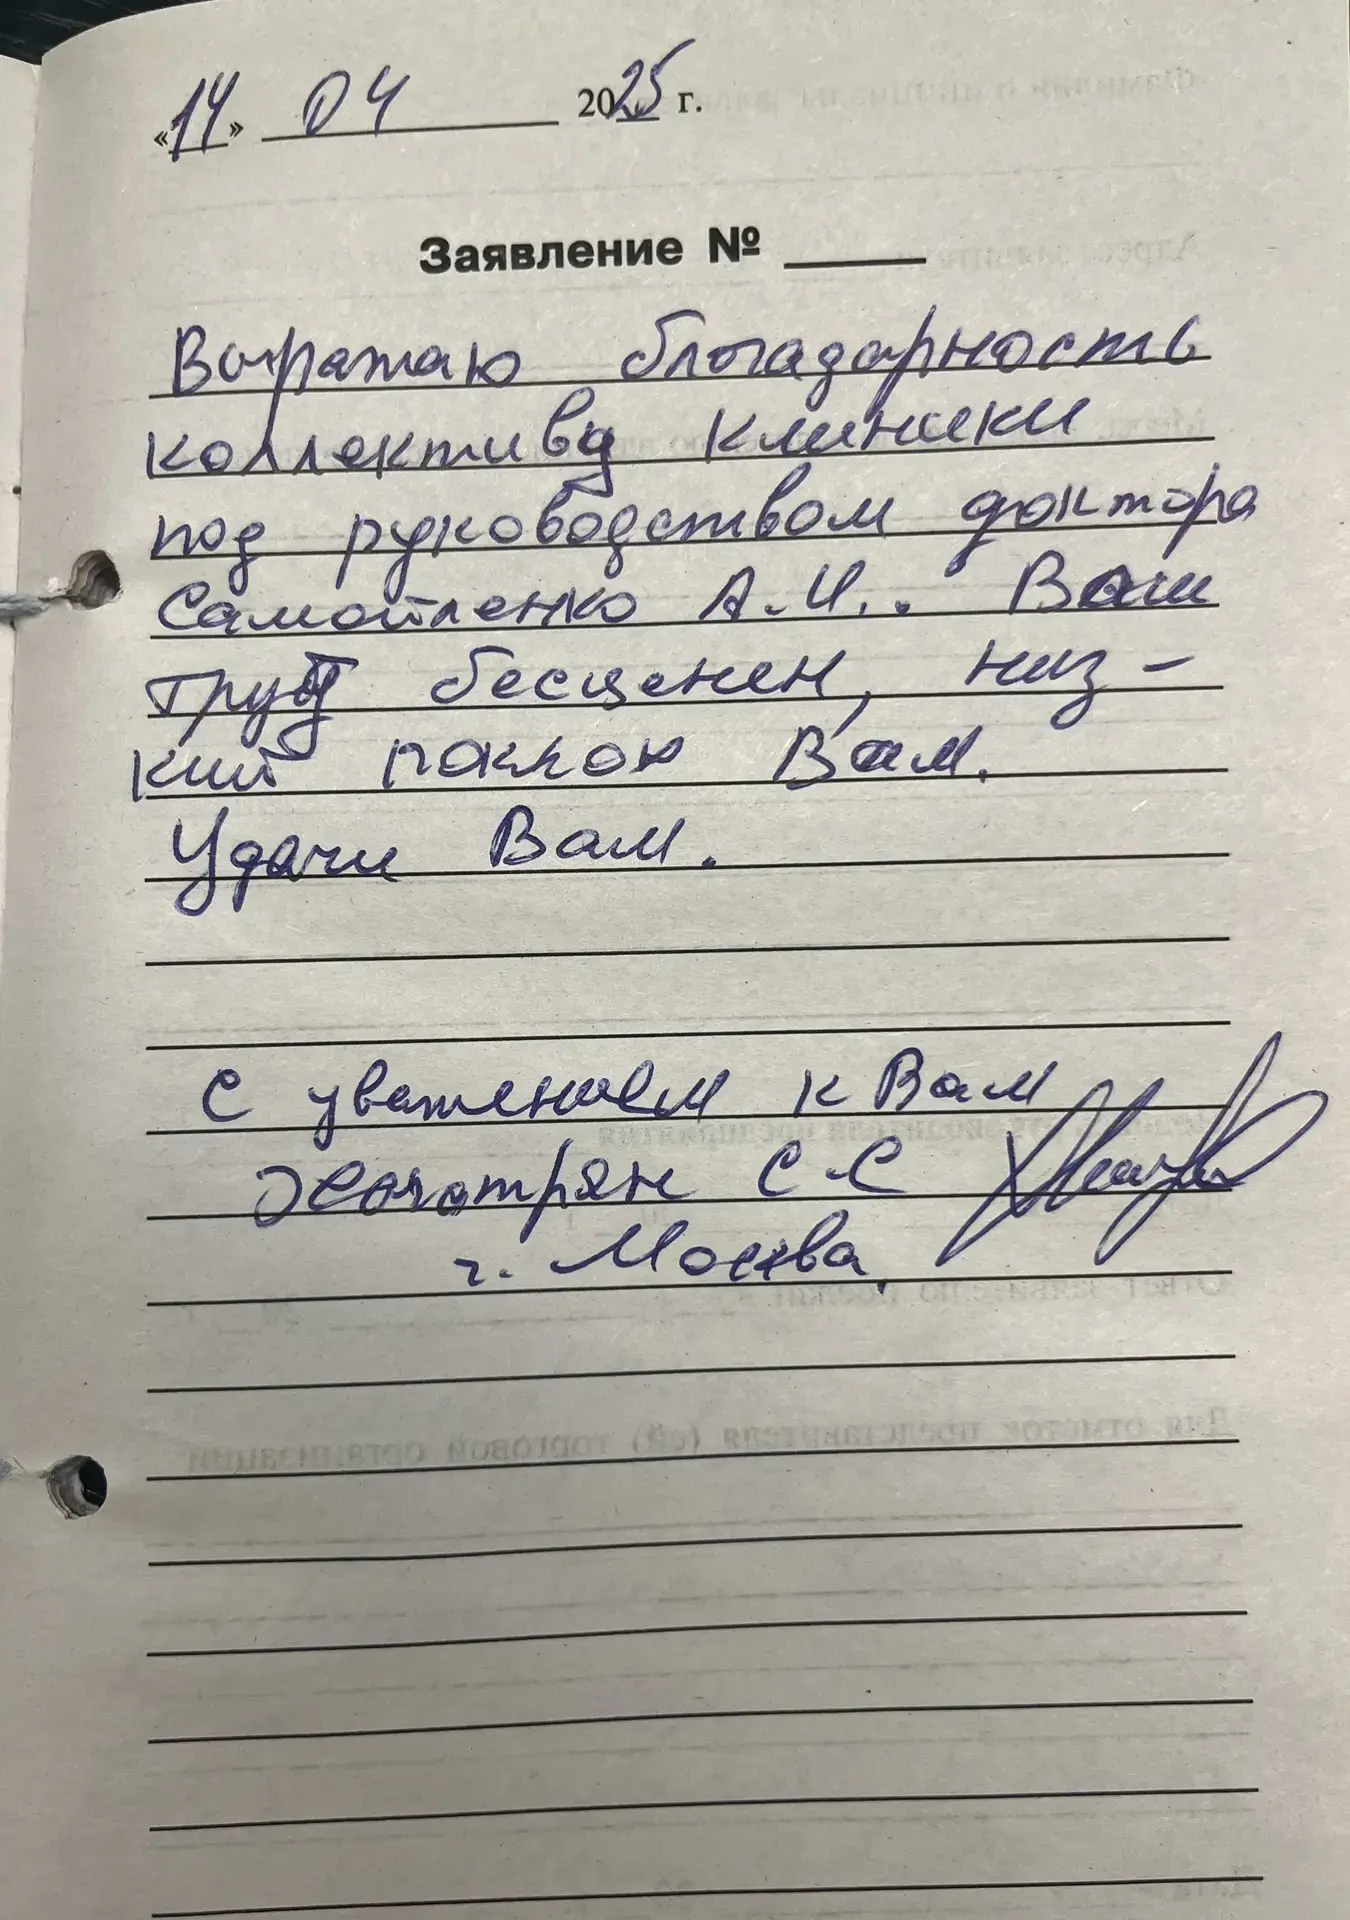 «14» 04 2025 г.
Заявление № ____
Выражаю благодарность
коллективу клиники
под руководством доктора
Самойленко А.И.. Ваш
труд бесценен, низ-
кий поклон Вам.
Удачи Вам.
С уважением к Вам
С.С
г. Москва.